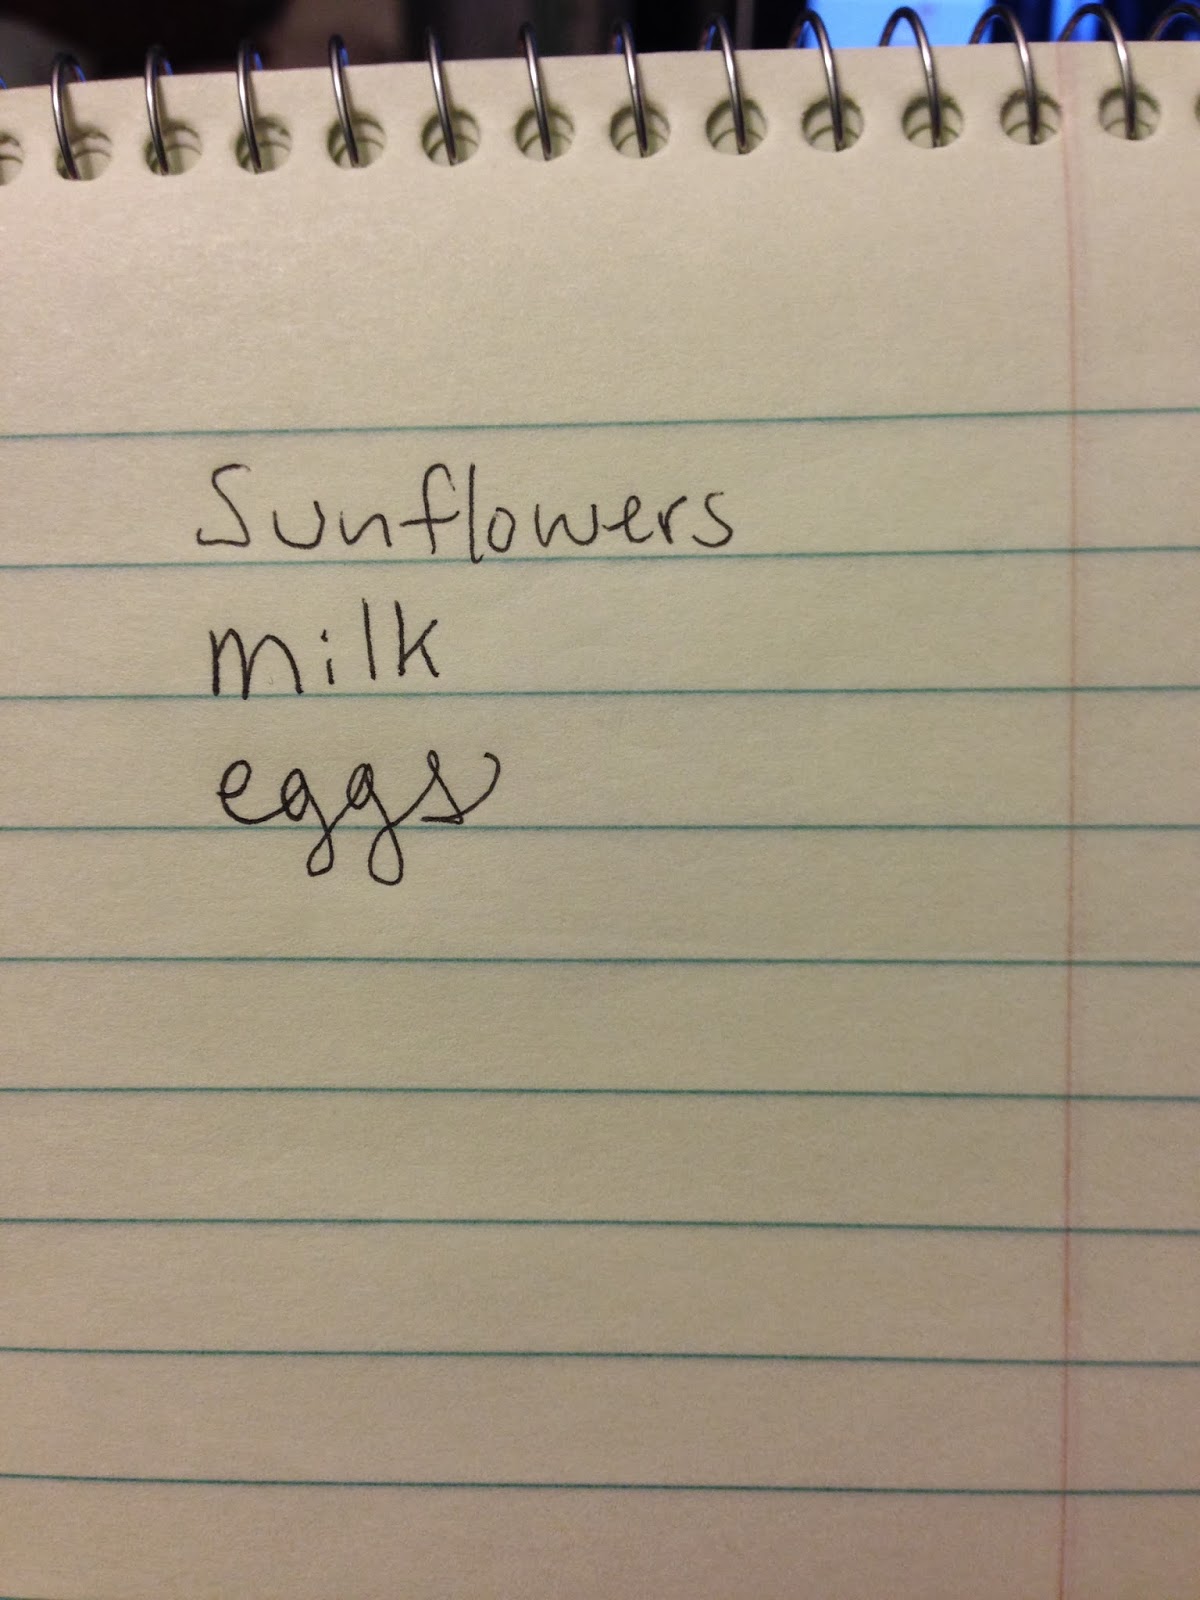 Sunflowers
milk
eggs